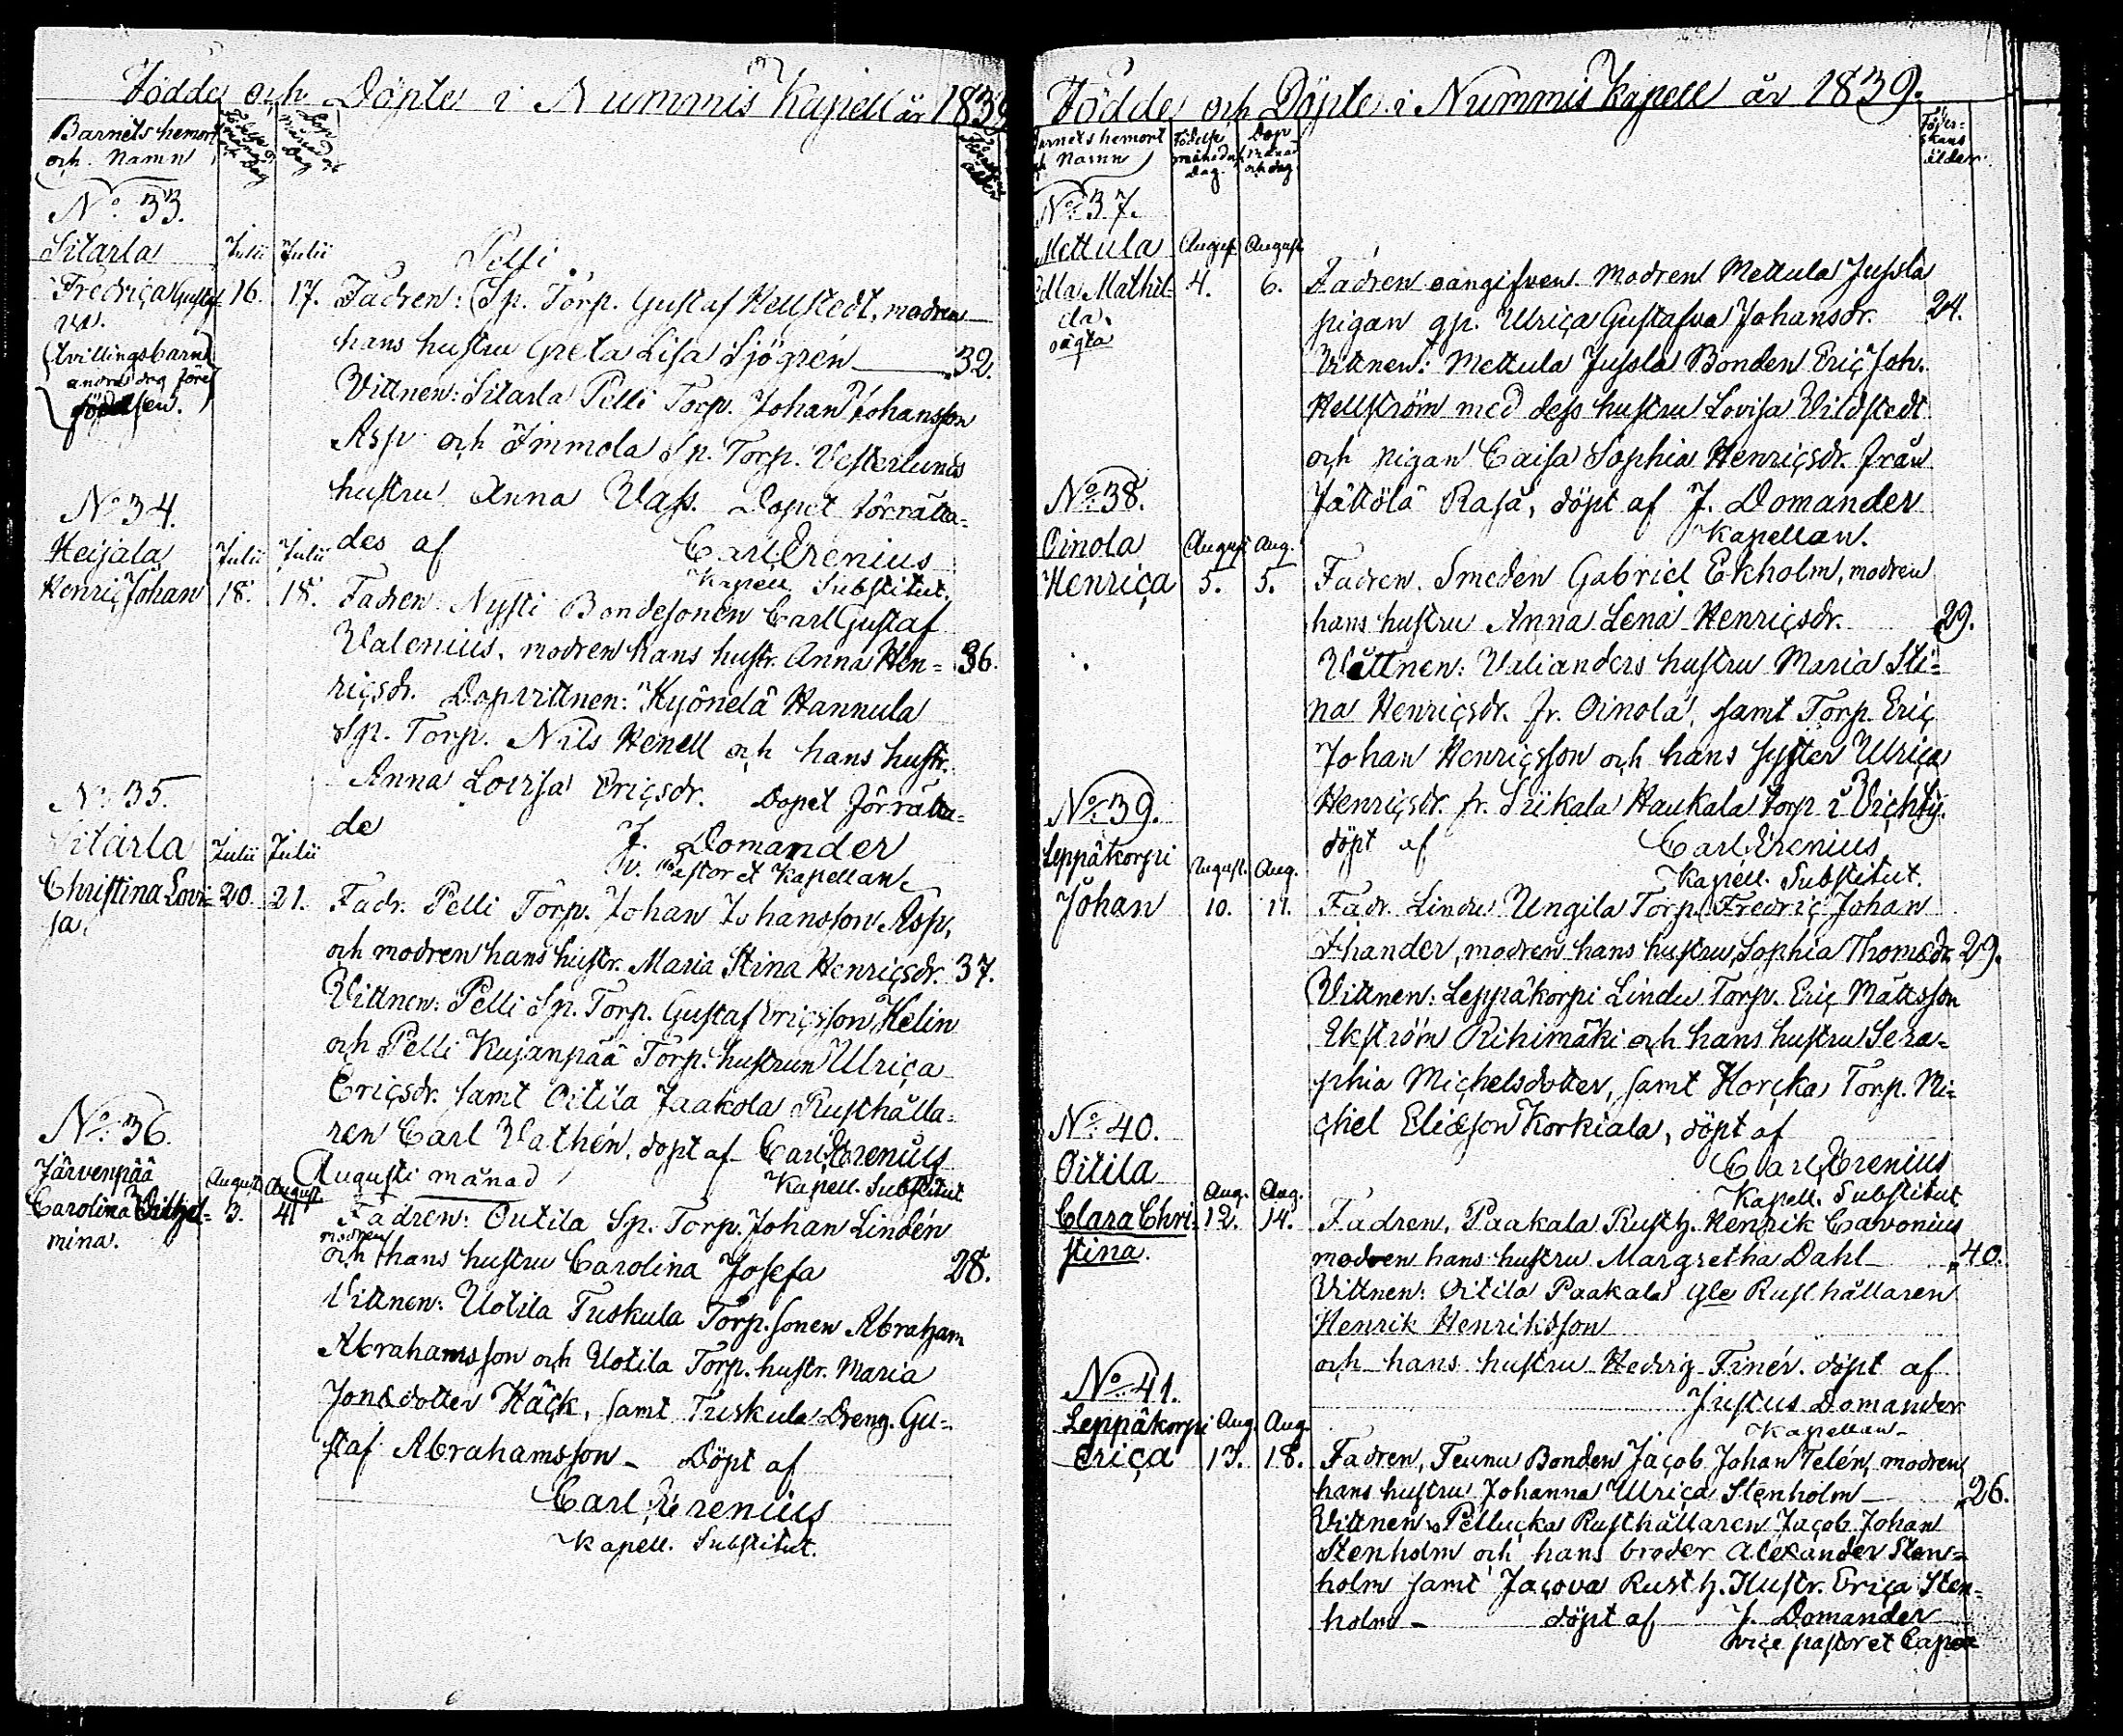 Födde och Döpte i Nummis Kapell år 1839
Barnets hemort
och Namn
N:o 33.
Sitarla Julii Julii
Pelli
Fredrica Gustaf- 16. 17. Fadren: Sp. Torp. Gustaf Hellstedt, modren
va.
hans hustru Greta Lisa Sjögrén 32.
(tvillingsbarn
andra dog före
födelsen.)
Vittnen: Sitarla Pelli Torp. Johan Johansson
Asp och Immola Sp. Torp. Vesterlunds
hustru Anna Vass. Dopet förrätta-
des af Carl Erenius
Kapell. Substitut.
N:o 34.
Heijala Julii Julii
Henric Johan 18. 18. Fadren Nysti Bondesonen Carl Gustaf
Valenius, modren hans hustr. Anna Hen- 36.
ricsdr. Dopvittnen: Kyönelä Hannula
Sp. Torp. Nils Henell och hans hustr.
Anna Lovisa Ericsdr. Dopet förrätta-
de J. Domander
v. Pastor et Kapellan.
N:o 35.
Sitarla Julii Julii
Christina Lovi- 20. 21. Fadr. Pelli Torp. Johan Johansson Asp,
sa.
och modren hans hustr. Maria Stina Henricsdr. 37.
Vittnen: Pelli Sp. Torp. Gustaf Ericsson Helin
och Pelli Kujanpää Torp. hustrun Ulrica
Ericsdr. samt Oitila Jaakola Rusthålla-
ren Carl Vathén, döpt af Carl Erenius
Kapell. Substitut
Augusti månad
N:o 36.
Järvenpää August. August.
Carolina Vilhel- 3. 4. Fadren: Outila Sp. Torp. Johan Lindén
mina.
modren
och hans hustru Carolina Josefa 28.
Vittnen: Uotila Tuskula Torp. sonen Abraham
Abrahamsson och Uotila Torp. hustr. Maria
Jonsdotter Häck, samt Tuskula Dreng. Gu-
staf Abrahamsson - Döpt af
Carl Erenius
Kapell. Substitut.
Födde och Döpte i Nummis Kapell år 1839.
Barnets hemort
och Namn
Födelse
månad och
Dag.
Dop
månad
och dag
Föder-
skans
ålder
N:o 37.
Mettula August August
Edla Mathil- 4. 6. Fadren oangifven. Modren Mettula Jussla
da.
oägta
pigan qp. Ulrica Gustafva Johansdr. 24.
Vittnen: Mettula Jussla Bonden Eric Joh.
Hellström med dess hustru Lovisa Vildstedt
och pigan Caisa Sophia Henricsdr. från
Jättölä Rasa, döpt af J. Domander
Kapellan.
N:o 38.
Oinola August Aug.
Henrica 5. 5. Fadren. Smeden Gabriel Ekholm, modren
hans hustru Anna Lena Henricsdr. 29.
Vittnen: Valianders hustru Maria Sti-
na Henricsdr. fr. Oinola, samt Torp. Eric
Johan Henricsson och hans syster Ulrica
Henricsdr. fr. Siikala Haukala torp i Vichty.
döpt af Carl Erenius
Kapell. Substitut.
N:o 39.
Leppäkorpi August. Aug.
Johan 10. 11. Fadr. Lindu Ungila Torp. Fredric Johan
Ihander, modren hans hustru Sophia Thomædr. 29.
Vittnen: Leppäkorpi Lindu Torp. Eric Mattsson
Ekström Rihimäki och hans hustru Sera-
phia Michelsdotter, samt Horcka Torp. Mi-
chel Eliæson Korkiala, döpt af
Carl Erenius
Kapell. Substitut
N:o 40.
Oitila Aug. Aug.
Clara Chri- 12. 14. Fadren, Paakala Rusth. Henrik Cavonius
stina.
modren hans hustru Margretha Dahl 40.
Vittnen: Oitila Paakala gle Rusthållaren
Henrik Henriksson
och hans hustru Hedvig Finér. döpt af
Justus Domander
Kapellan-
N:o 41.
Leppäkorpi Aug. Aug.
Erica 13. 18. Fadren, Teunu Bonden Jacob Johan Telén, modren
hans hustru Johanna Ulrica Stenholm 26.
Vittnen Pellucka Rusthållaren Jacob Johan
Stenholm och hans broder Alexander Sten-
holm samt Jacova Rusth. Hustr. Erica Sten-
holm - döpt af J. Domander
vice pastor et Capel